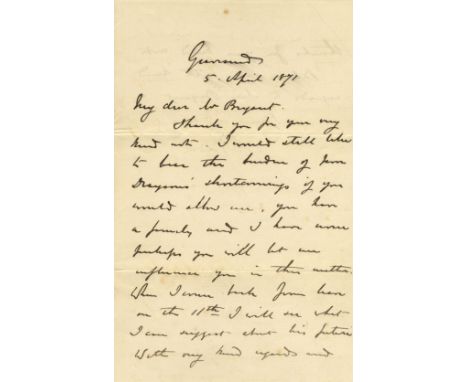 Gravesend
5. April 1871
My dear Mr Bryant.
Thank you for your very
kind note. I would still like
to bear the burden of
shortcomings if you
would allow me, you have
a family and I have none
perhaps you will let me
influence you in this matter.
When I come back from
on the 11th I will see what
I can suggest about his future
With my kind regards and